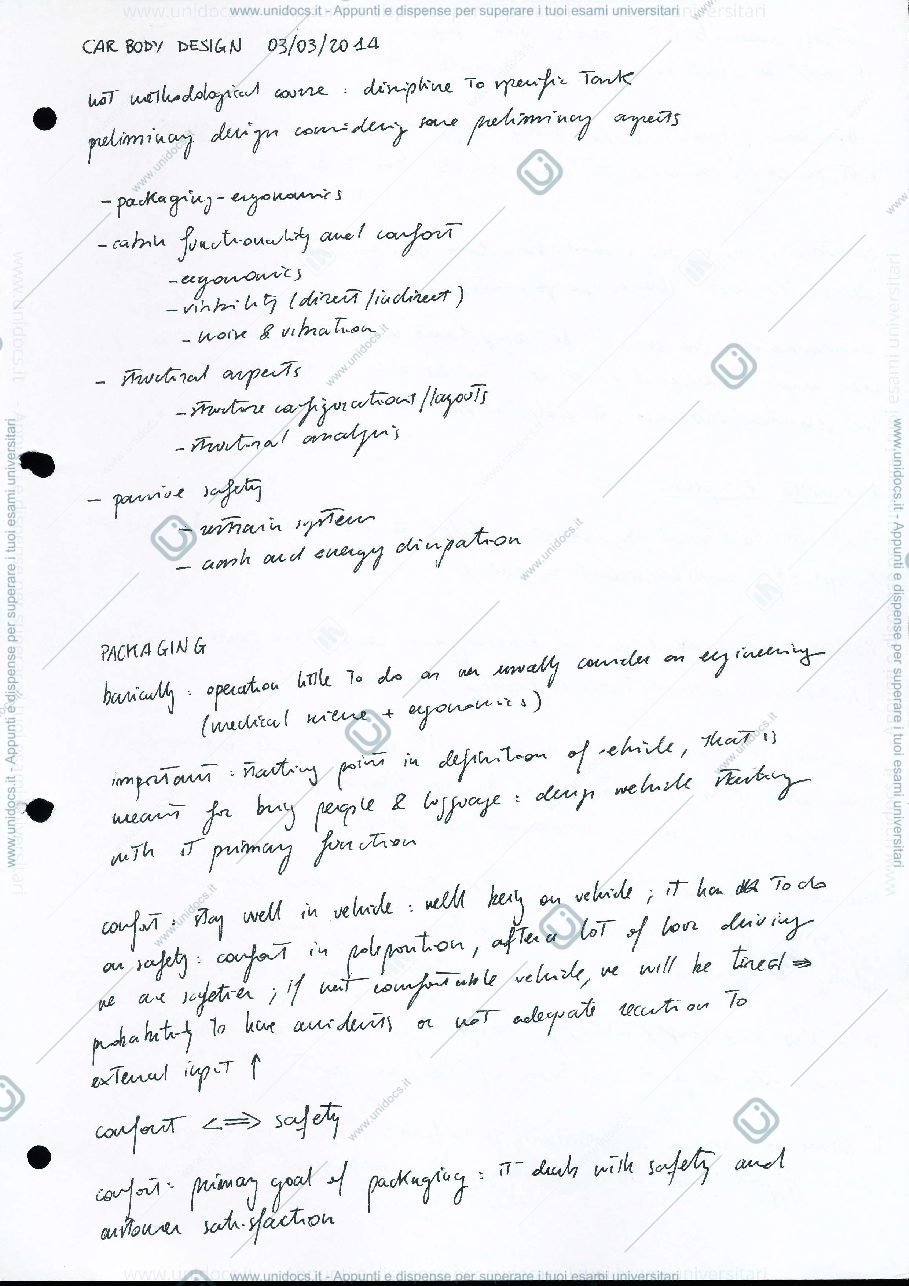 www.unidocs.it - Appunti e dispense per superare i tuoi esami universitari
CAR BODY DESIGN 03/03/2014
not methodological course : discipline to specific task
preliminary design considering some preliminary aspects
- packaging - ergonomics
- cabin functionality and confort
- ergonomics
- visibility (direct/indirect)
- noise & vibration
- structural aspects
- structure configurations/layouts
- structural analysis
- passive safety
- restrain systems
- crash and energy dissipation
PACKAGING
basically : operation little to do as we usually consider as engineering
(medical science + ergonomics)
important : starting point in definition of vehicle, that is
means for bring people & luggage : design vehicle starting
with it primary function
confort : stay well in vehicle : well being on vehicle ; it has to do
on safety : confort in pole position, after a lot of hour driving
we are safetier ; if not comfortable vehicle, we will be tired ⇒
probability to have accidents or not adequate reaction to
external input ↑
confort <=> safety
confort : primary goal of packaging : it deals with safety and
customer satisfaction
www.unidocs.it - Appunti e dispense per superare i tuoi esami universitari